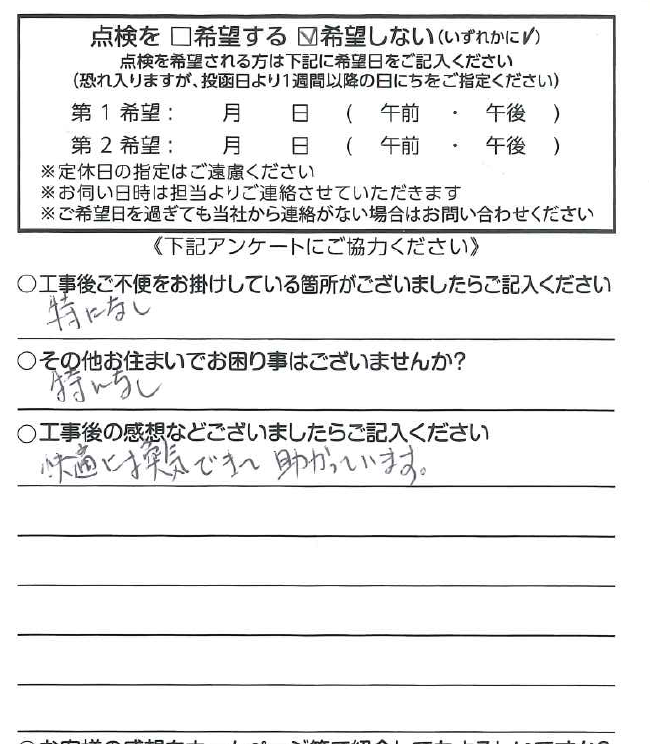 点検を □希望する ☑希望しない(いずれかに✓)
点検を希望される方は下記に希望日をご記入ください
(恐れ入りますが、投函日より1週間以降の日にちをご指定ください)
第1希望: 月 日 ( 午前 ・ 午後 )
第2希望: 月 日 ( 午前 ・ 午後 )
※定休日の指定はご遠慮ください
※お伺い日時は担当よりご連絡させていただきます
※ご希望日を過ぎても当社から連絡がない場合はお問い合わせください
《下記アンケートにご協力ください》
○工事後ご不便をお掛けしている箇所がございましたらご記入ください
特になし
○その他お住まいでお困り事はございませんか?
特になし
○工事後の感想などございましたらご記入ください
快適に換気できて助かっています。
○お客様の感想をホームページ等で紹介してもよろしいですか?